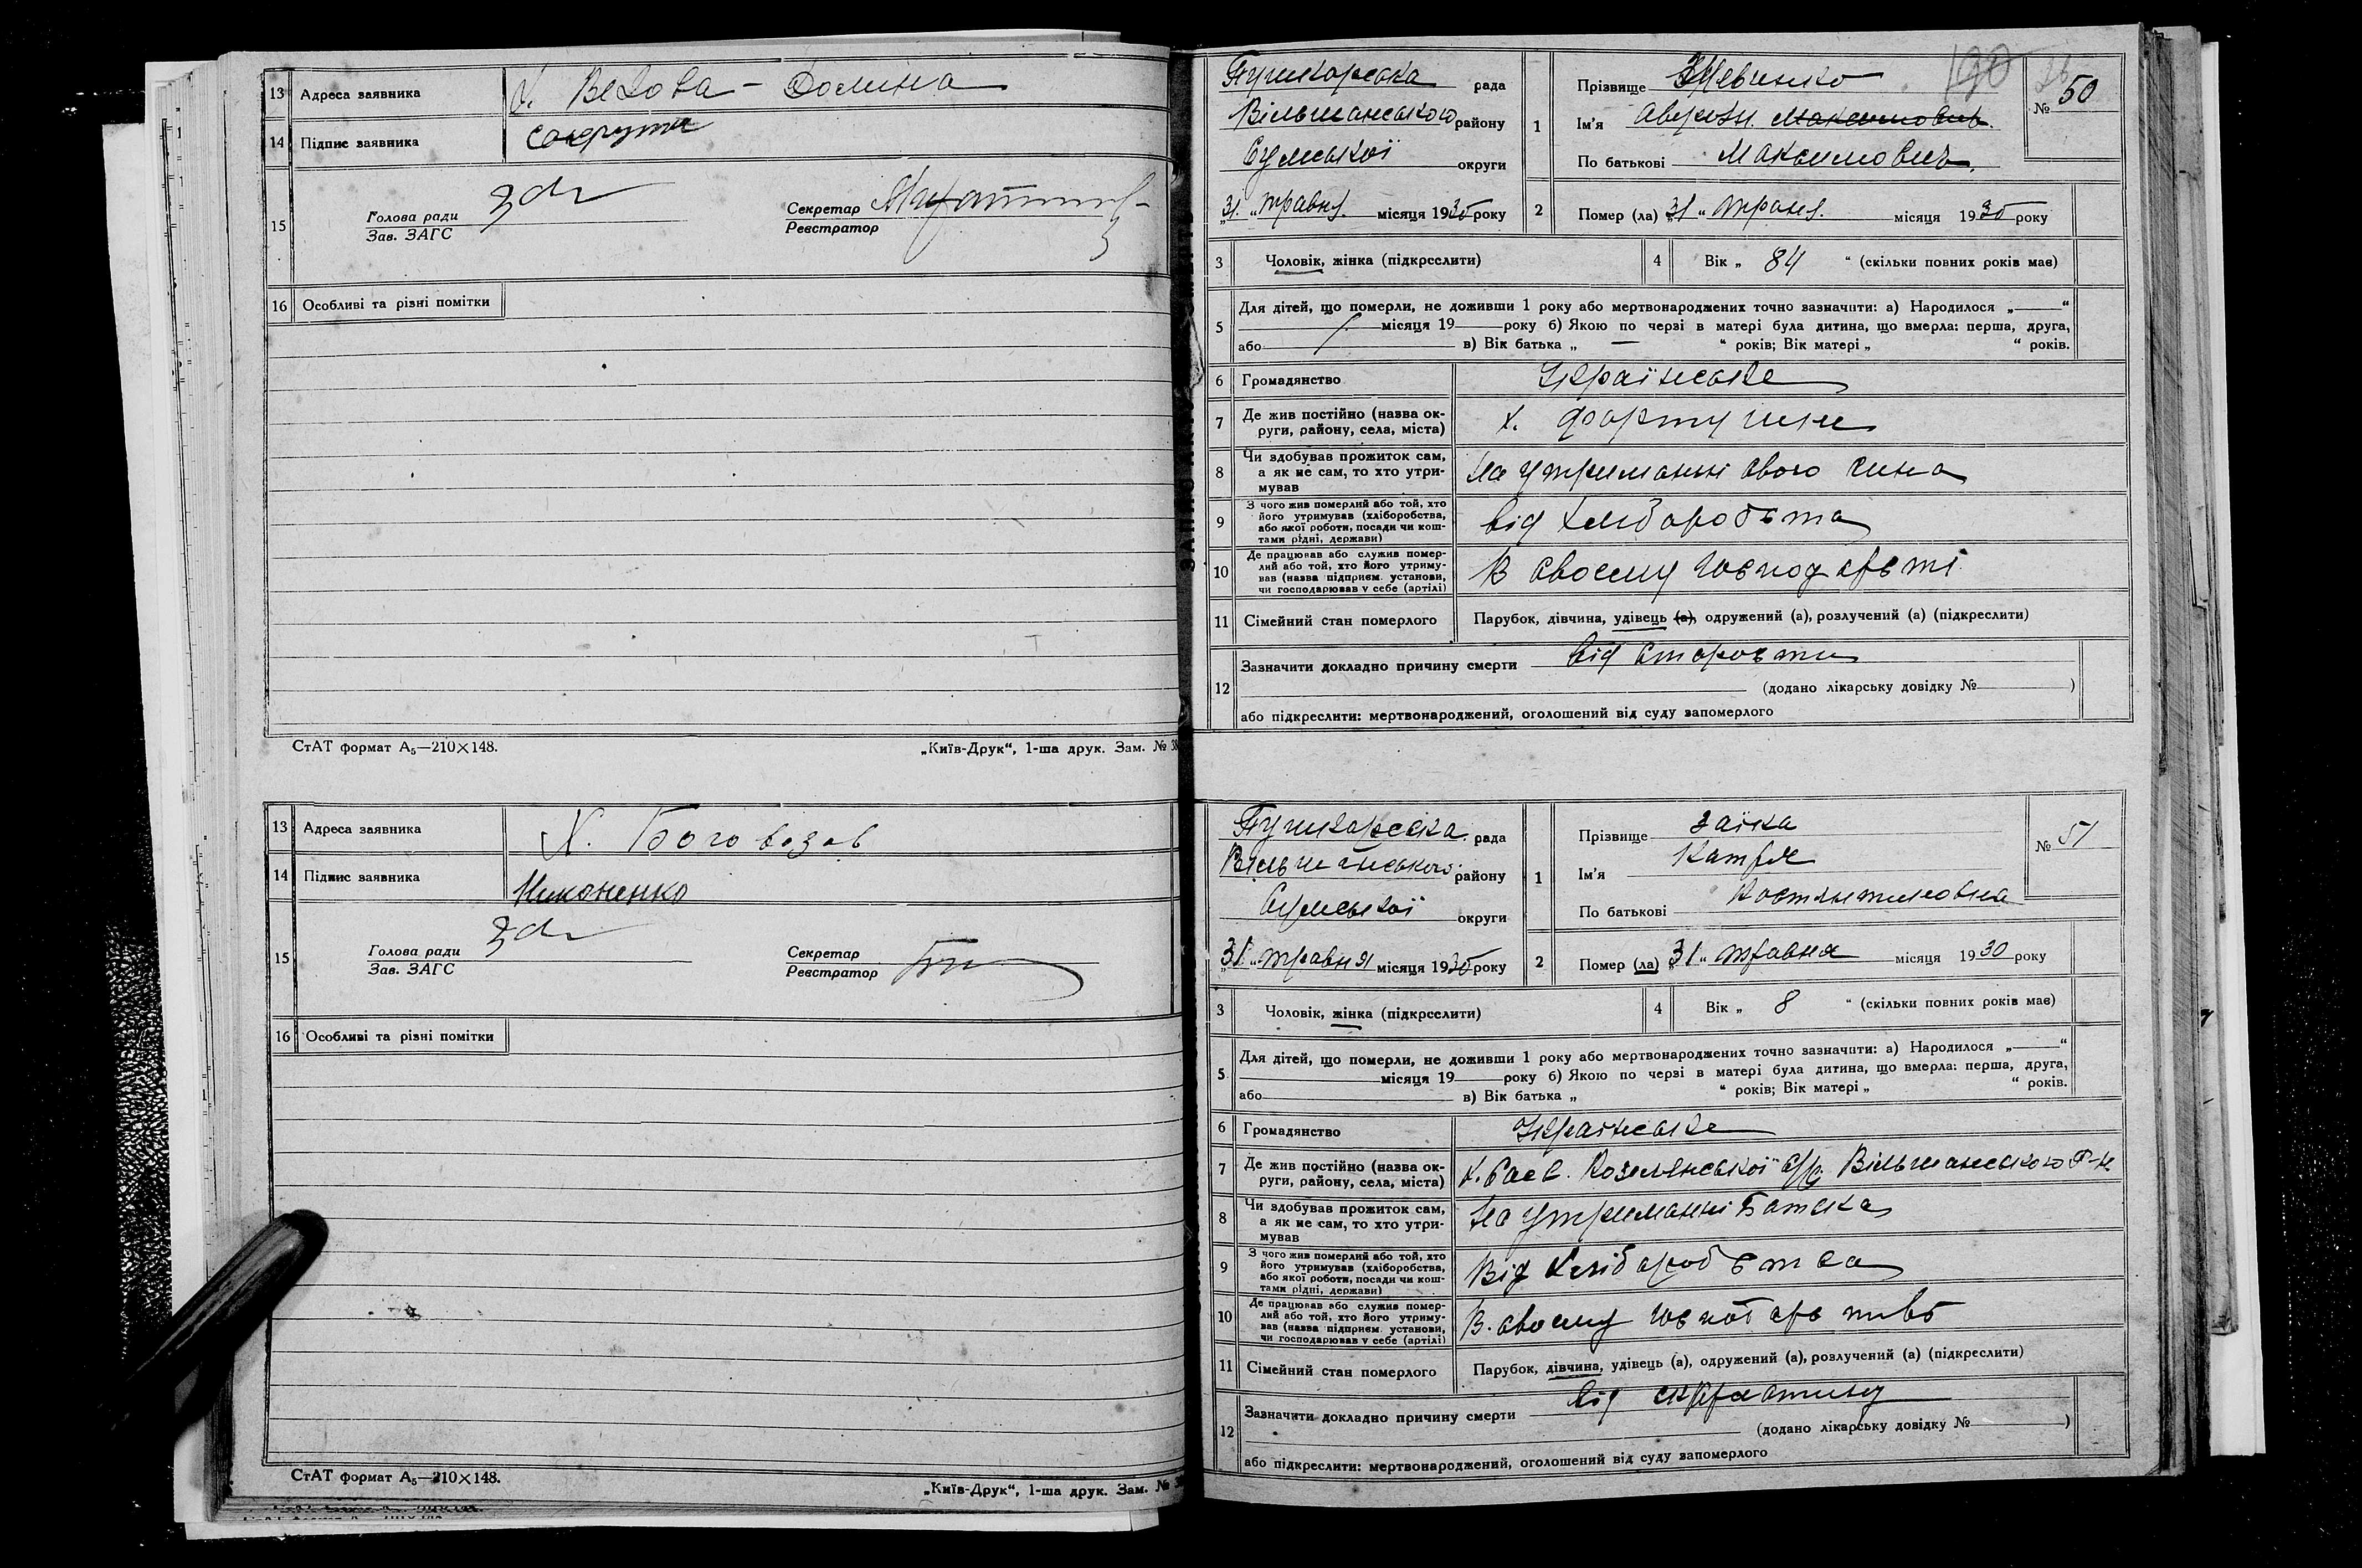 13 Адреса заявника Х. Вехова – Долина
14 Підпис заявника
15 Голова ради
Зав. ЗАГС
Секретар
Реєстратор
16 Особливі та різні помітки
СтАТ формат А₅—210×148.
„Київ-Друк“, 1-ша друк. Зам. №
13 Адреса заявника Х. Боговозов
14 Підпис заявника Никоненко
15 Голова ради
Зав. ЗАГС
Секретар
Реєстратор
16 Особливі та різні помітки
СтАТ формат А₅—210×148.
„Київ-Друк“, 1-ша друк. Зам. №
190
Пушкарська рада
Вільшанського району
Сумської округи
„31“ травня місяця 1930 року
1 Прізвище
Ім'я Максимович
По батькові Максимович
№ 50
2 Помер (ла) „31“ травня місяця 1930 року
3 Чоловік, жінка (підкреслити)
4 Вік „ 84 “ (скільки повних років мав)
5 Для дітей, що померли, не доживши 1 року або мертвонароджених точно зазначити: а) Народилося „ “
місяця 19 року б) Якою по черзі в матері була дитина, що вмерла: перша, друга,
або в) Вік батька „ — “ років; Вік матері „ “ років.
6 Громадянство Українське
7 Де жив постійно (назва ок-
руги, району, села, міста) х.
8 Чи здобував прожиток сам,
а як не сам, то хто утри-
мував На утриманні свого сина
9 З чого жив померлий або той, хто
його утримував (хліборобства,
або якої роботи, посади чи кош-
тами рідні, держави) від хліборобства
10 Де працював або служив помер-
лий або той, хто його утриму-
вав (назва підприєм. установи,
чи господарював у себе (артілі) В своєму господарстві
11 Сімейний стан померлого Парубок, дівчина, удівець (а), одружений (а), розлучений (а) (підкреслити)
12 Зазначити докладно причину смерти від старости
(додано лікарську довідку № )
або підкреслити: мертвонароджений, оголошений від суду запомерлого
Пушкарська рада
Вільшанського району
Сумської округи
„31“ травня місяця 1930 року
1 Прізвище Заїка
Ім'я Катря
По батькові Костянтиновна
№ 51
2 Помер (ла) „31“ травня місяця 1930 року
3 Чоловік, жінка (підкреслити)
4 Вік „ 8 “ (скільки повних років мав)
5 Для дітей, що померли, не доживши 1 року або мертвонароджених точно зазначити: а) Народилося „ “
місяця 19 року б) Якою по черзі в матері була дитина, що вмерла: перша, друга,
або в) Вік батька „ “ років; Вік матері „ “ років.
6 Громадянство Українське
7 Де жив постійно (назва ок-
руги, району, села, міста) х. с/р Вільшанського р-н.
8 Чи здобував прожиток сам,
а як не сам, то хто утри-
мував На утриманні батька
9 З чого жив померлий або той, хто
його утримував (хліборобства,
або якої роботи, посади чи кош-
тами рідні, держави) Від хліборобства
10 Де працював або служив помер-
лий або той, хто його утриму-
вав (назва підприєм. установи,
чи господарював у себе (артілі) В своєму
11 Сімейний стан померлого Парубок, дівчина, удівець (а), одружений (а), розлучений (а) (підкреслити)
12 Зазначити докладно причину смерти від
(додано лікарську довідку № )
або підкреслити: мертвонароджений, оголошений від суду запомерлого